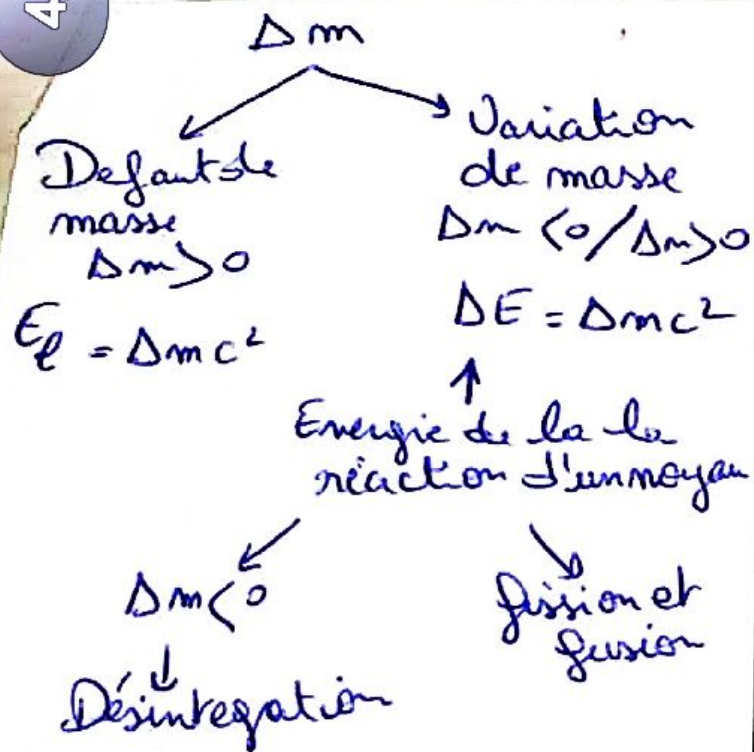 4
Δm
Defaut de
masse
Δm>0
El = Δmc²
Variation
de masse
Δm <0/Δm>0
ΔE = Δmc²
Energie de la la
réaction d'un noyau
Δm<0
Désintegation
fission et
fusion